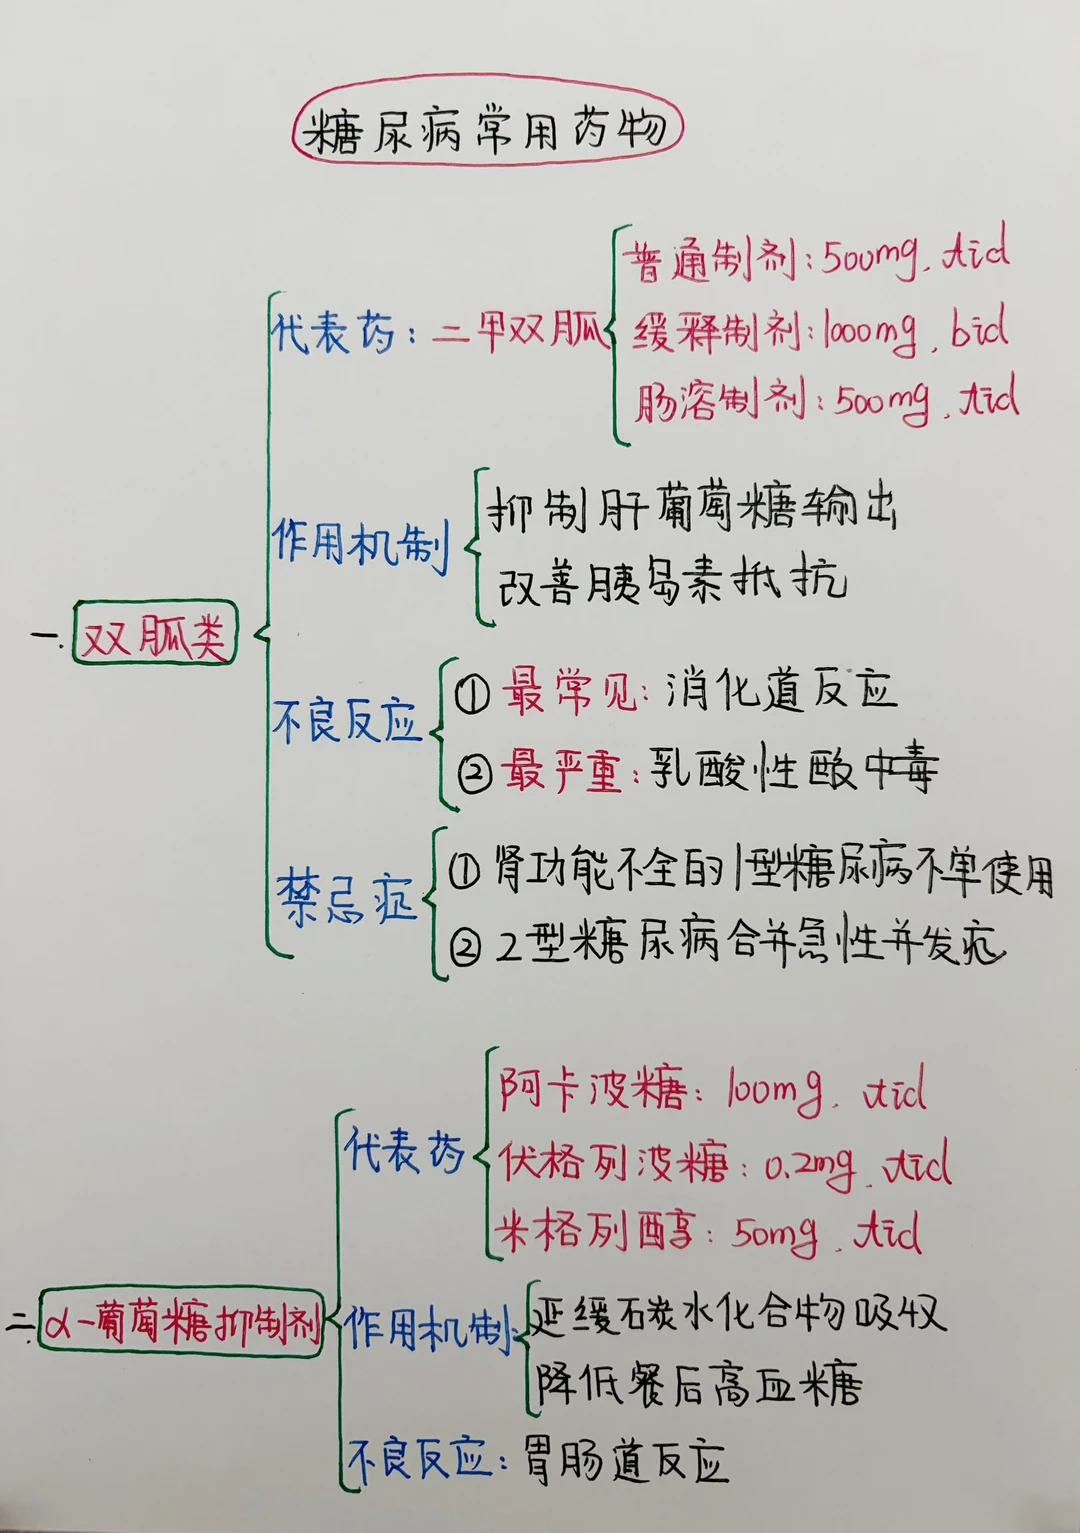 糖尿病常用药物
普通制剂:500mg,tid
代表药:二甲双胍
缓释制剂:1000mg,bid
肠溶制剂:500mg,tid
作用机制
抑制肝葡萄糖输出
改善胰岛素抵抗
一.双胍类
不良反应
①最常见:消化道反应
②最严重:乳酸性酸中毒
禁忌症
①肾功能不全的1型糖尿病不单使用
②2型糖尿病合并急性并发症
代表药
阿卡波糖:100mg,tid
伏格列波糖:0.2mg,tid
米格列醇:50mg,tid
二.α-葡萄糖抑制剂
作用机制:
延缓石炭水化合物吸收
降低餐后高血糖
不良反应:胃肠道反应